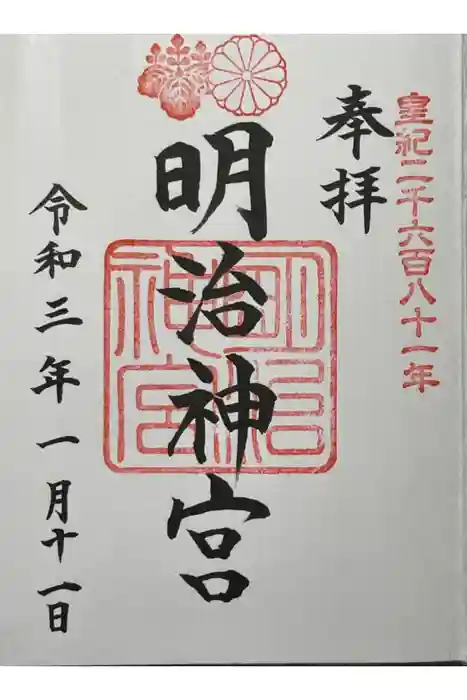 皇紀二千六百八十一年
奉拝
明治神宮
明治神宮
令和三年一月十一日